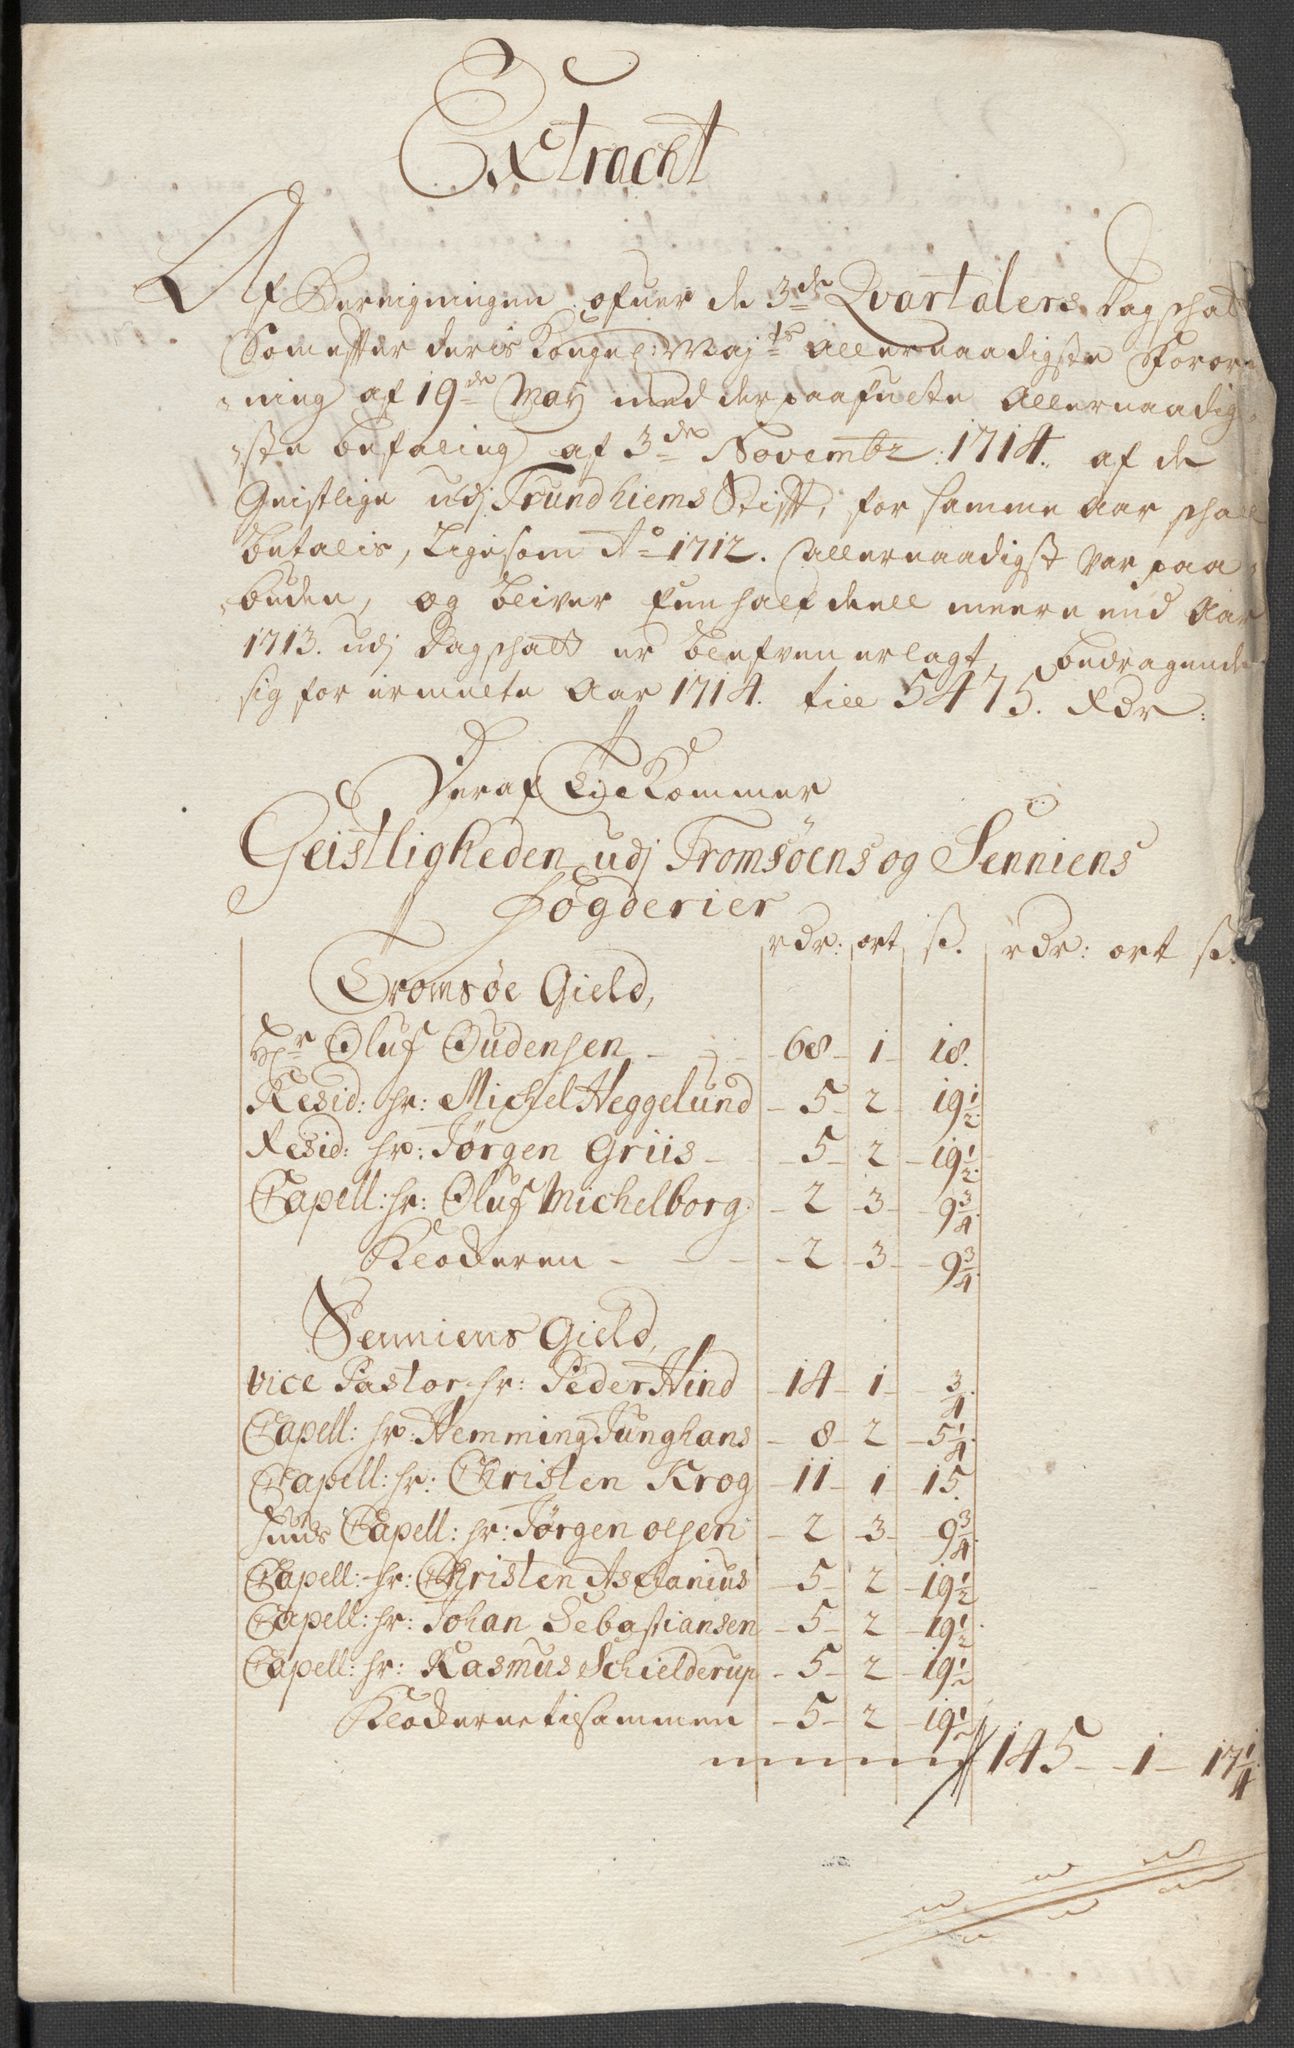 Extracht
Af Bereigningen ofuer de 3de Qvartalers Dagschatt
Som effter deris Kongel: Mayts allernaadigste Foror
ning af 19de May med der paafulte Allernaadig
ste befaling af 3de Novembr: 1714. af de
Geistlige udj Trundhiems Stifft, for samme aar schall
betalis, ligesom Ao 1712. allernaadigst var paa
buden, og bliver Een half deell meere end Aar
1713. udj Dagschatt er blefven erlagt, bedragende
sig for ermelte Aar 1714. till 5475. Rdr:
Deraf Tilkommer
Geistligheden udj Tromsöens og Senniens
Fogderier
rdr: ort ß. rdr: ort ß.
Tromsøe Gield,
Hr Oluf Oudensen 68 1 18.
Resid: hr: Michel Heggelund 5 2 19 1/2
Resid: hr: Jørgen Griis 5 2 19 1/2.
Capell: hr: Oluf Michelborg 2 3 9 3/4.
Klockeren 2 3 9 3/4.
Senniens Gield,
vice Pastor hr: Peder Hind 14 1 3/4.
Capell: hr: Hemming Junghans 8 2 5 1/4.
Capell: hr: Christen Krog 11 1 15.
Huus Capell: hr: Jørgen olsen 2 3 9 3/4.
Capell: hr: Christen Ascanius 5 2 19 1/2
Capell: hr: Johan Sebastiansen 5 2 19 1/2.
Capell: hr: Rasmus Schielderup 5 2 19 1/2
Klockerne tilsammen 5 2 19 1/2
145 1 17 1/4.